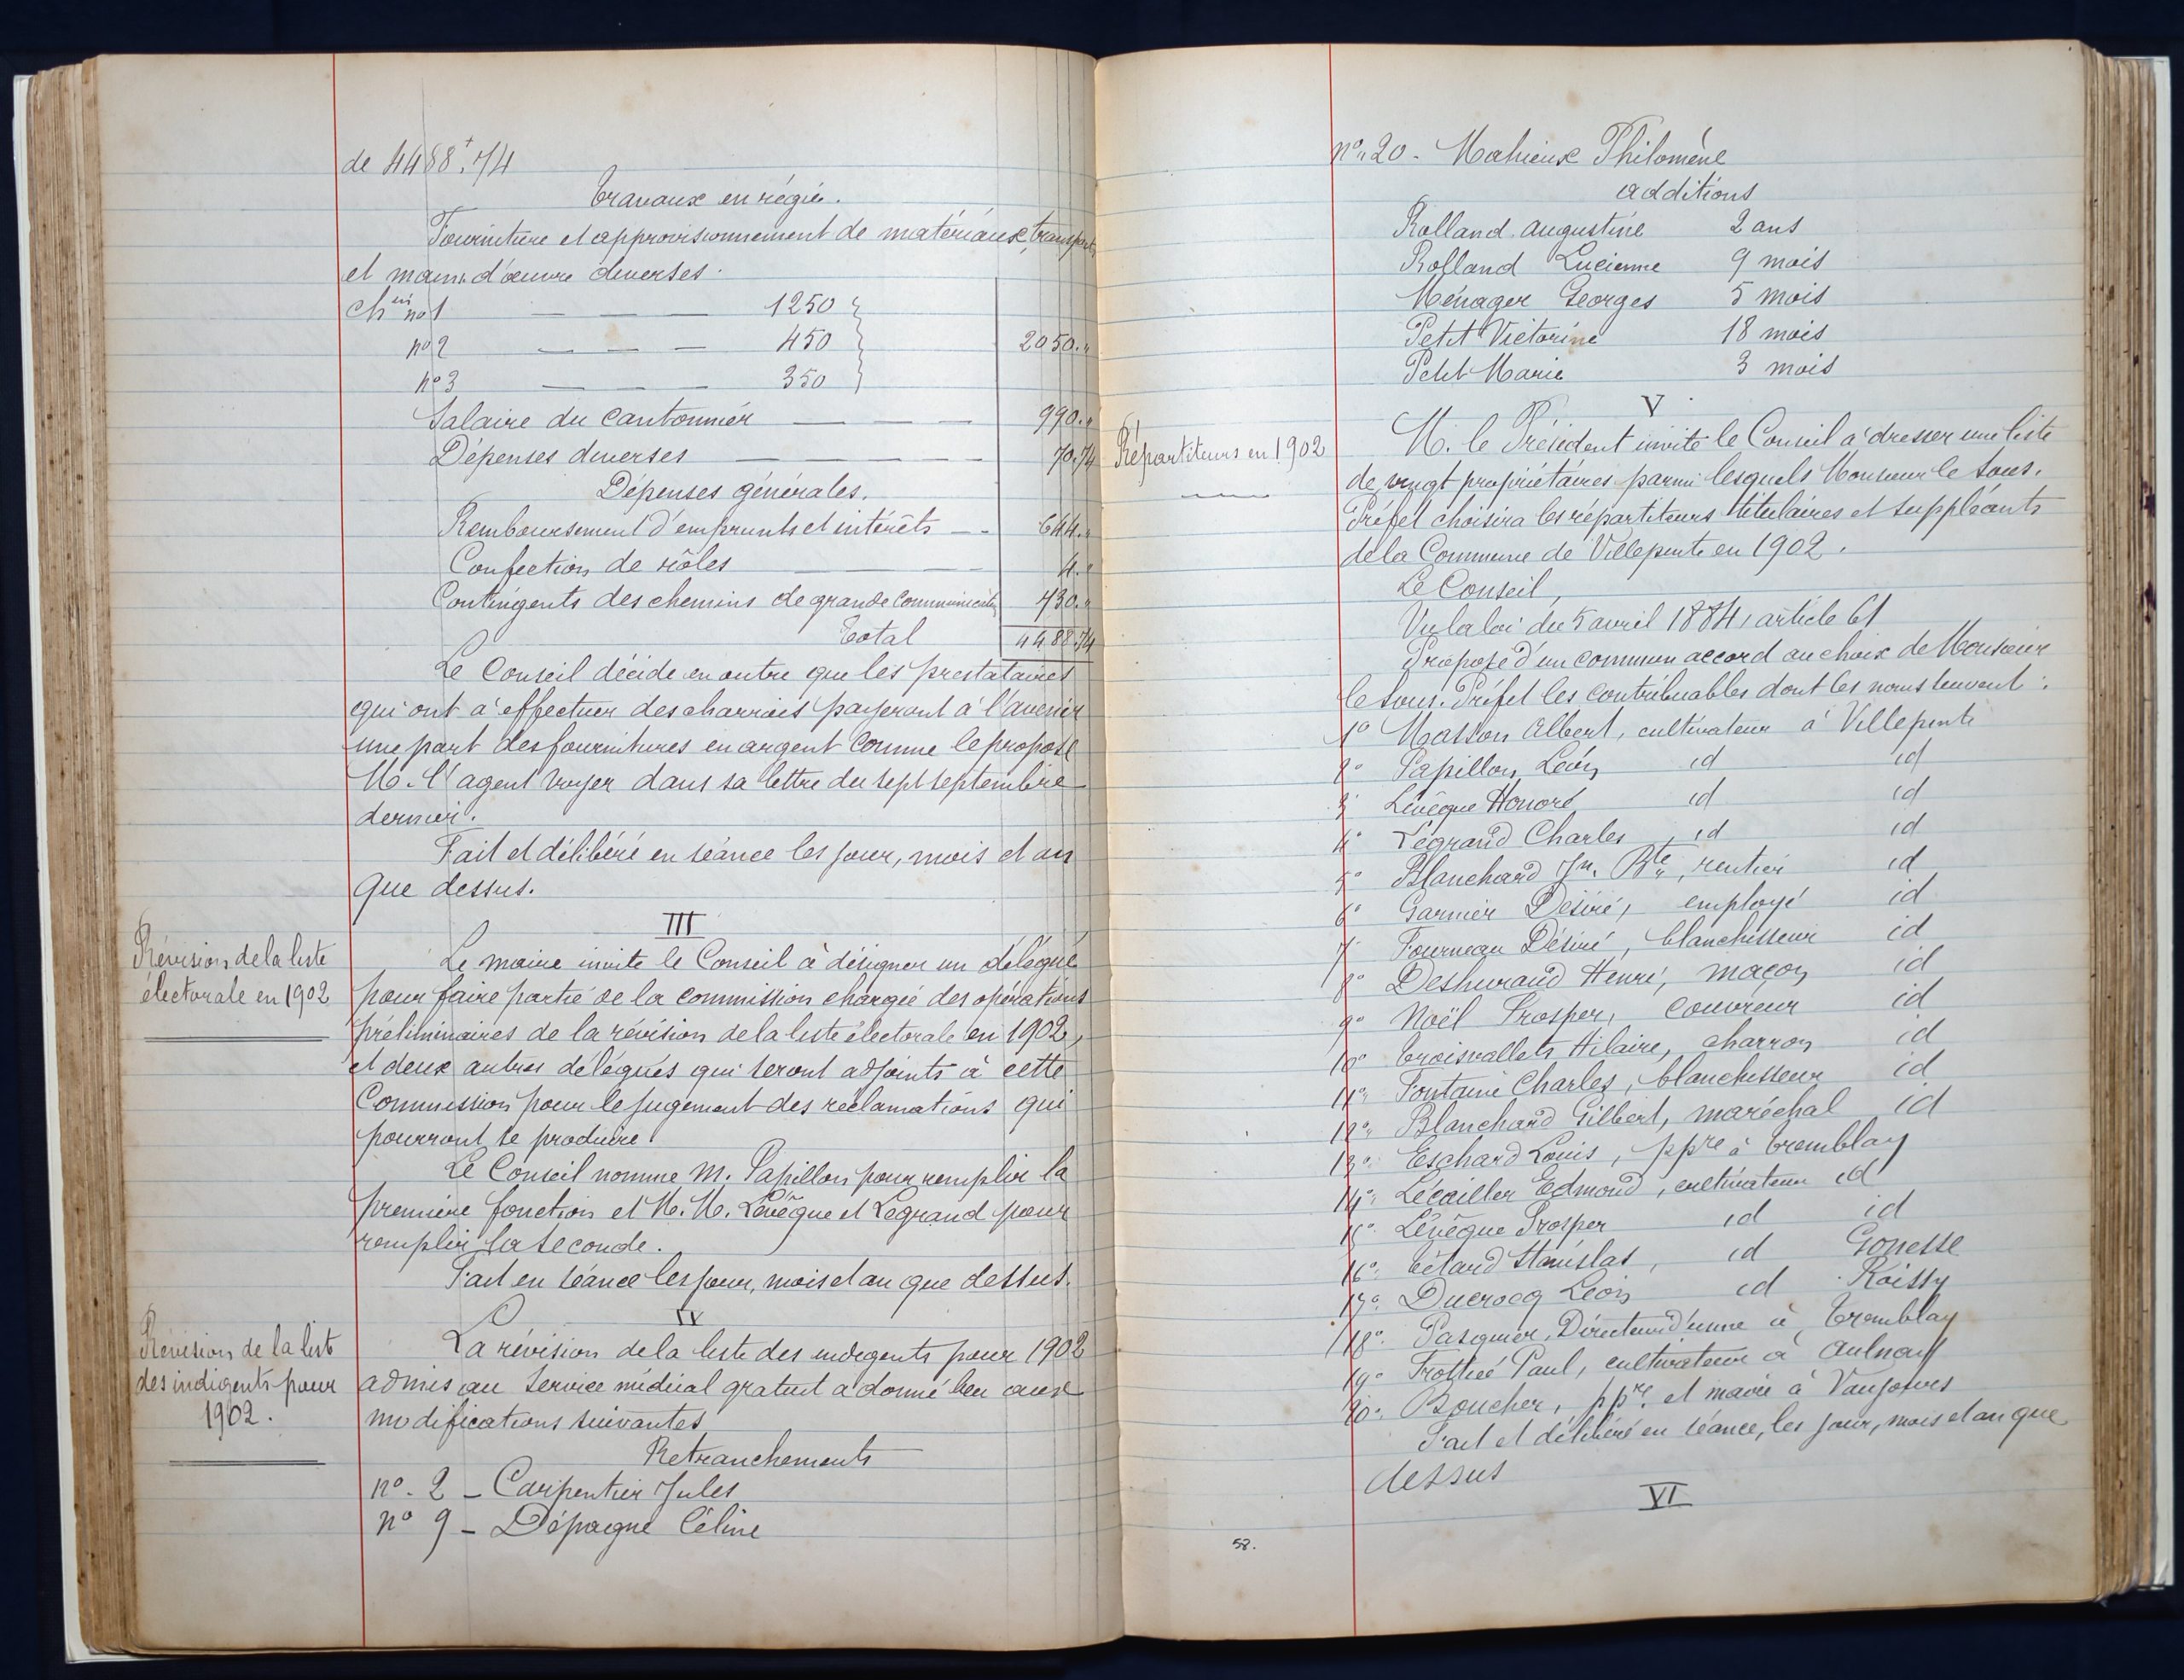 de 4488f.74
Travaux en régie.
Fourniture et approvisionnement de matériaux, transports
et main-d'œuvre diverses.
Ch.in no 1 — — — 1250
no 2 — — — 450 2050."
no 3 — — — 350
Salaire du cantonnier — — — 990."
Dépenses diverses — — — 70.74
Dépenses générales.
Remboursement d'emprunts et intérêts — - 644."
Confection de rôles — — 4."
Contingents des chemins de grande communication 730."
Total 4488.74
Le Conseil décide en outre que les prestataires
qui ont à effectuer des charrois payeront à l'avenir
une part des fournitures en argent comme le propose
M. l'agent voyer dans sa lettre du sept septembre
dernier.
Fait et délibéré en séance les jour, mois et an
que dessus.
III
Révision de la liste
électorale en 1902
Le maire invite le Conseil à désigner un délégué
pour faire partie de la commission chargée des opérations
préliminaires de la révision de la liste électorale en 1902,
et deux autres délégués qui seront adjoints à cette
Commission pour le jugement des réclamations qui
pourront se produire.
Le Conseil nomme M. Papillon pour remplir la
première fonction et M. M. Lévêque et Legrand pour
remplir la seconde.
Fait en séance les jour, mois et an que dessus.
IV
Révision de la liste
des indigents pour
1902.
La révision de la liste des indigents pour 1902
admis au service médical gratuit a donné lieu aux
modifications suivantes
Retranchements
no. 2 - Carpentier Jules
no 9 - Dépagne Céline
no. 20 - Mahieux Philomène
additions
Rolland Augustine 2 ans
Rolland Lucienne 9 mois
Ménager Georges 5 mois
Petit Victorine 18 mois
Petit Marie 3 mois
V
Répartiteurs en 1902
M. le Président invite le Conseil à dresser une liste
de vingt propriétaires parmi lesquels Monsieur le Sous-
Préfet choisira les répartiteurs titulaires et suppléants
de la Commune de Villepinte en 1902.
Le Conseil,
Vu la loi du 5 avril 1884, article 61
Propose d'un commun accord au choix de Monsieur
le Sous-Préfet les contribuables dont les noms suivent :
1o Masson Albert, cultivateur à Villepinte
2o Papillon Léon id id
3o Lévêque Honoré id id
4o Legrand Charles, id id
5o Blanchard Jn. Bte, rentier id
6o Garnier Désiré, employé id
7o Fourneau Désiré, blanchisseur id
8o Deshuraud Henri, maçon id
9o Noël Prosper, couvreur id
10o Troisvallets Hilaire, charron id
11o Fontaine Charles, blanchisseur id
12o Blanchard Gilbert, maréchal id
13o Eschard Louis, ppre à Tremblay
14o Lécailler Edmond, cultivateur id
15o Lévêque Prosper id id
16o Tétard Stanislas, id Gonesse
17o Ducrocq Léon id Roissy
18o Pasquier, Directeur d'usine à Tremblay
19o Frottié Paul, cultivateur à Aulnay
20o Boucher, ppre et maire à Vaujours
Fait et délibéré en séance, les jour, mois et an que
dessus
VI
58.